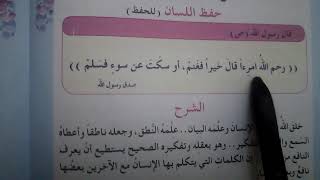 حفظ اللسان (للحفظ)
قال رسول الله (ص)
(( رحم الله امرءاً قالَ خيراً فغنمَ، أو سكتَ عن سوءٍ فسَلمَ ))
صدق رسول الله
الشرح
خلق الله الإنسان وعلمهُ البيان .. علمهُ النطق، وجعله ناطقاً وأعطاهُ
السمع و التفكير.. وهو بعقله وتفكيره الصحيح يستطيع أن يعرف
النافع من إن الكلمات التي يتكلم بها الإنسانُ مع الآخرين بعضها